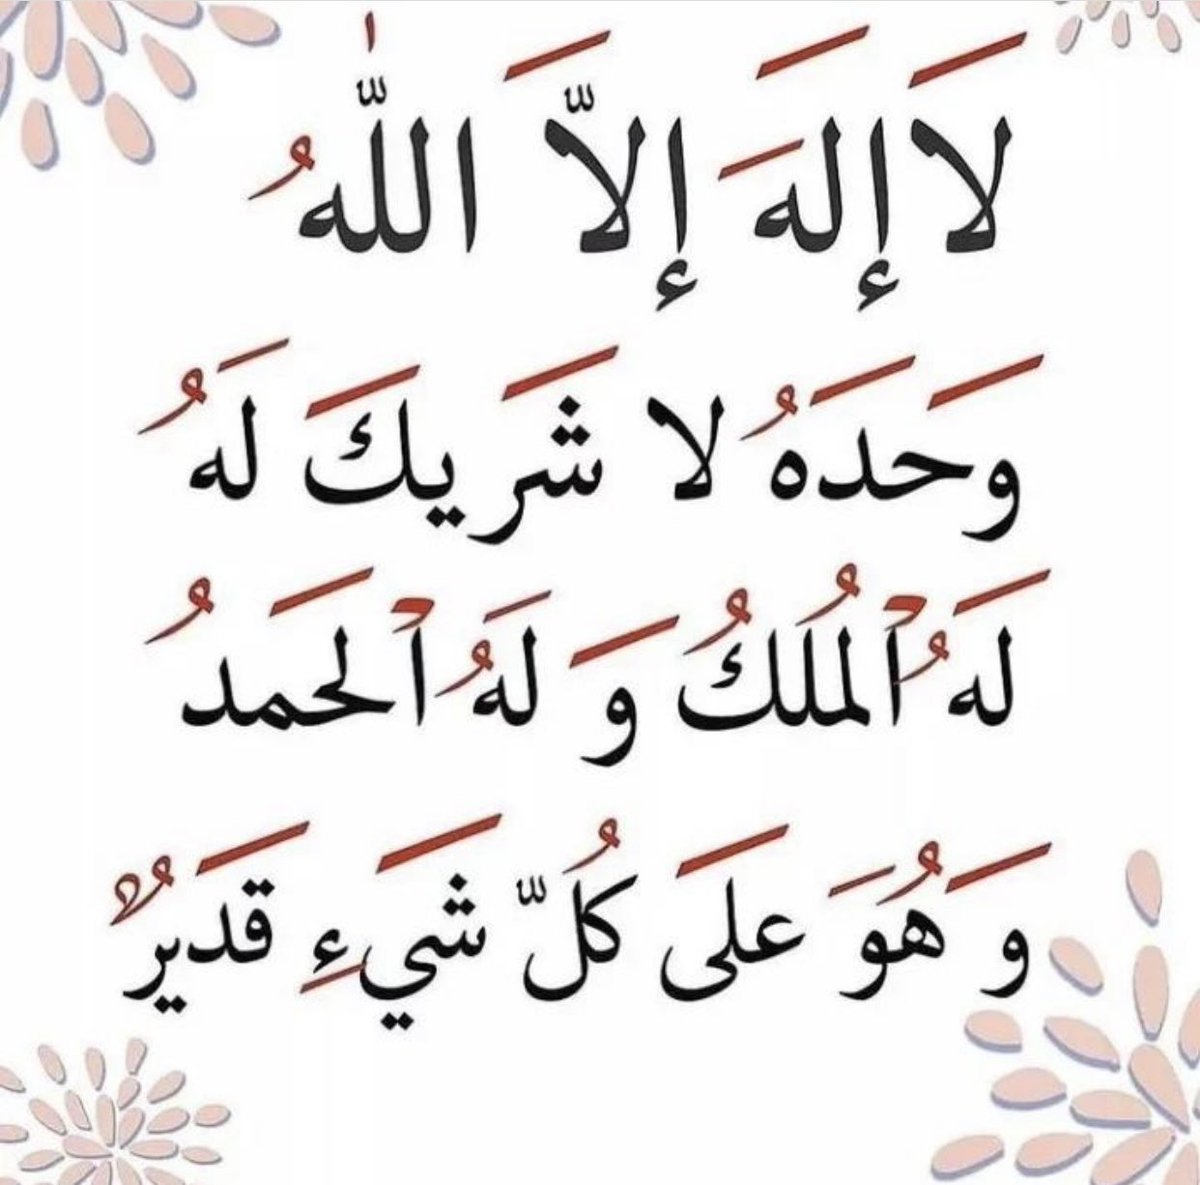 لاَ إِلَهَ إِلاَّ اللّٰهُ
وَحَدَهُ لا شَريكَ لَهُ
لَهُ ٱلمُلكُ وَ لَهُ ٱلحَمدُ
وَ هُوَ عَلَى كُلّ شَيءِ قَدَيرٌ